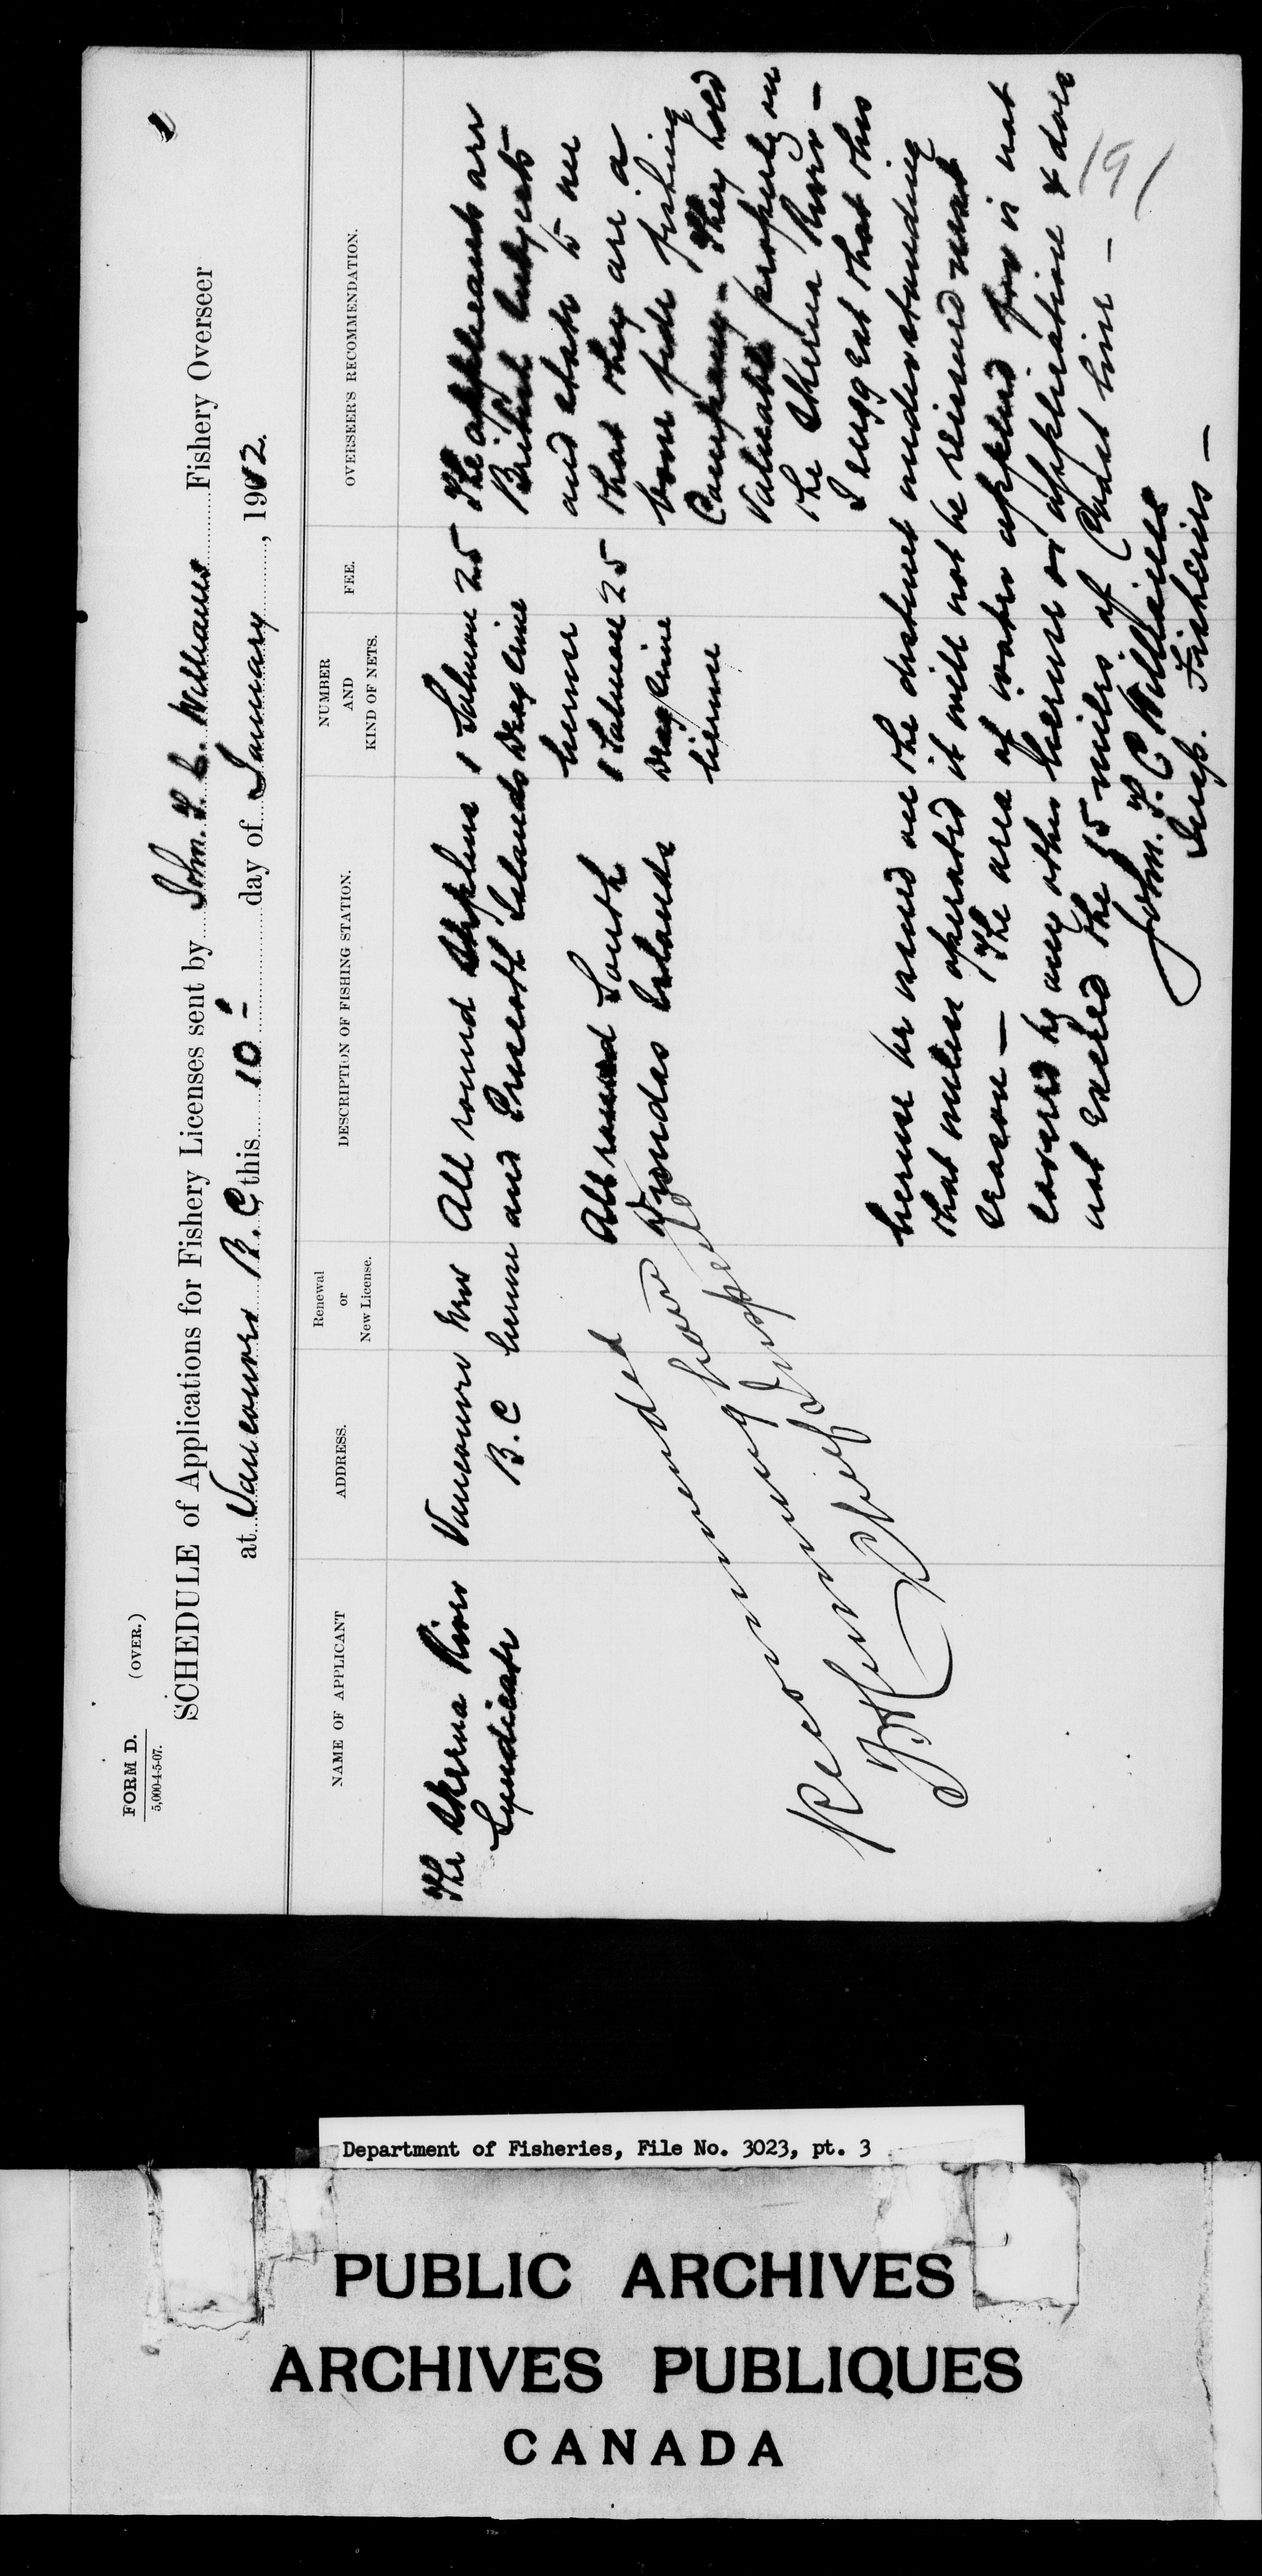 FORM D.
5,000-4-5-07.
(OVER.)
SCHEDULE of Applications for Fishery Licenses sent by John. T. C. Williams Fishery Overseer
at Vancouver B. C. this 10th day of January, 1912.
NAME OF APPLICANT
ADDRESS.
Renewal
or
New License.
DESCRIPTION OF FISHING STATION.
NUMBER
AND
KIND OF NETS.
FEE.
OVERSEER'S RECOMMENDATION.
The Skeena River
Syndicate
Vancouver
B. C
New
license
All round Stephens
and Prescott Islands
1 Salmon
Drag Seine
license
25
All round South
Dundas Islands
1 Salmon
Drag Seine
license
25
The applicants are
British Subjects
and state to me
that they are a
bona fide fishing
Company - They hold
Valuable property on
the Skeena River -
I suggest that this
license be issued on the distinct understanding
that unless operated it will not be reissued next
season - The area of water applied for is not
covered by any other license or application & does
not exceed the 5 miles of Coast line -
John. T. C Williams
Insp. Fisheries -
Recommended
Chief Insp
191
Department of Fisheries, File No. 3023, pt. 3
PUBLIC ARCHIVES
ARCHIVES PUBLIQUES
CANADA